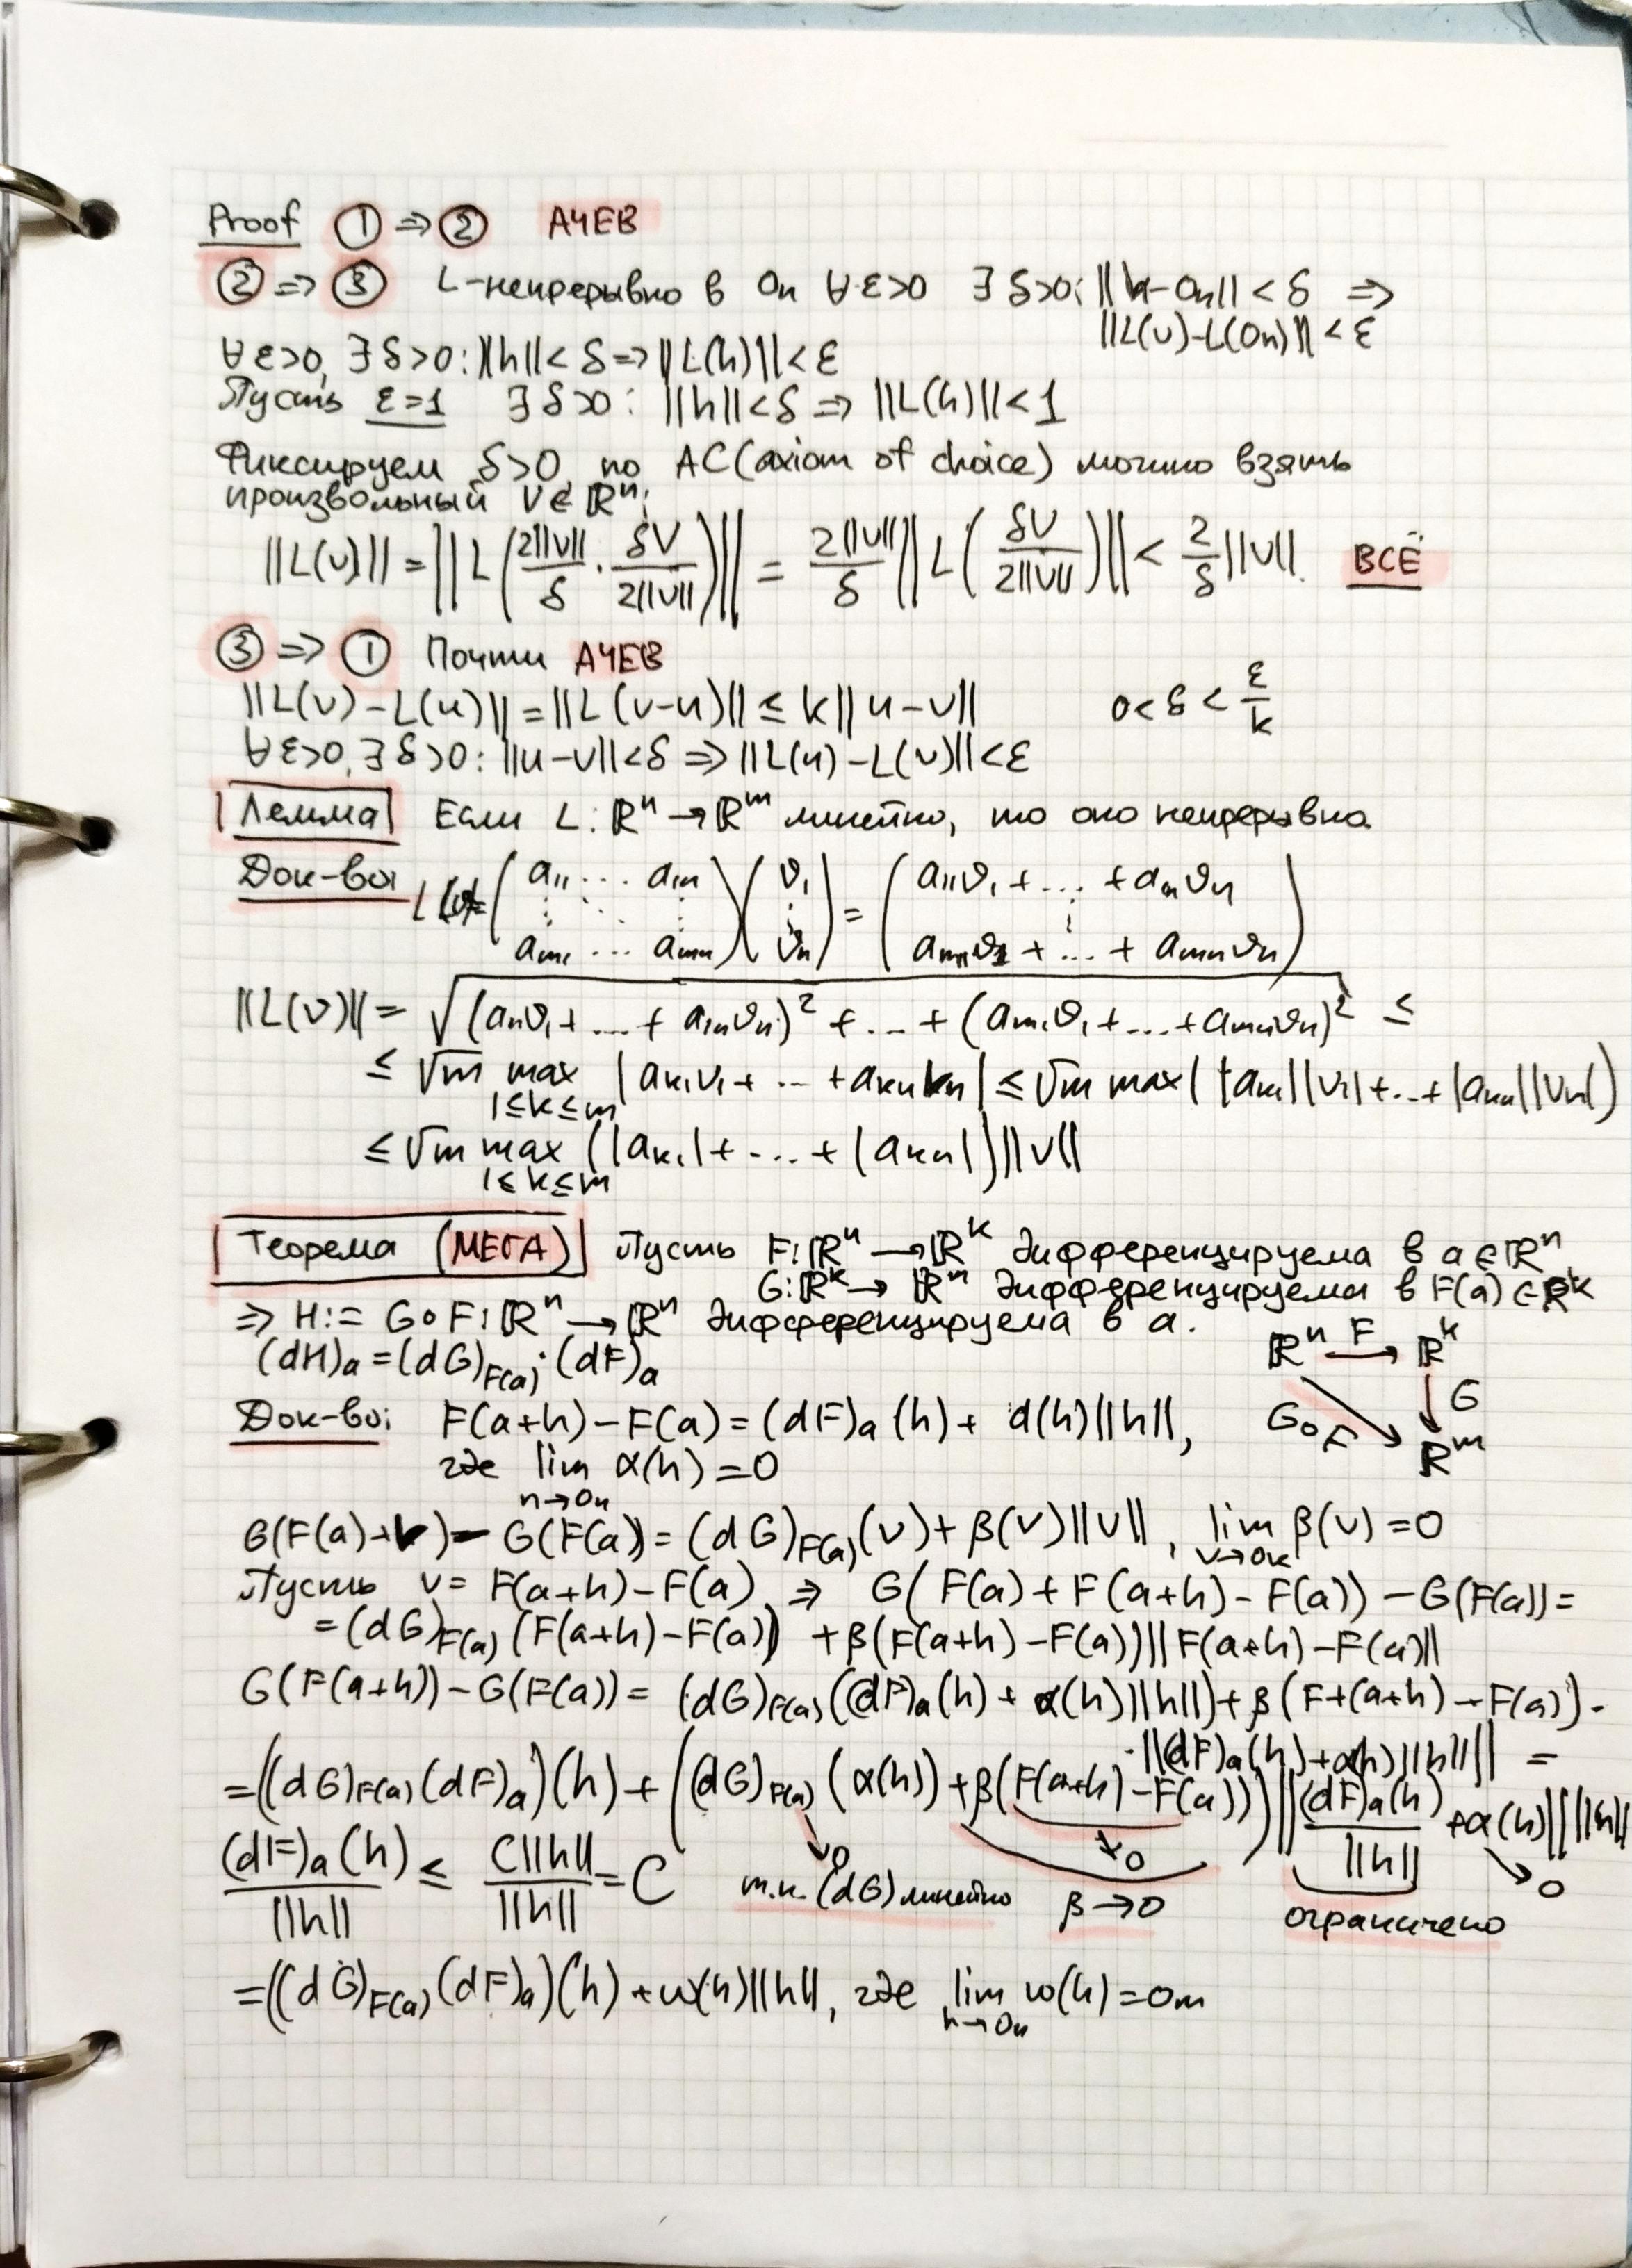 Proof ① ⇒ ② АЧЕВ
② ⇒ ③ L-непрерывно в 0n ∀ε>0 ∃δ>0: ||h-0n|| < δ ⇒
||L(v)-L(0n)|| < ε
∀ε>0, ∃δ>0: ||h|| < δ ⇒ ||L(h)|| < ε
Пусть ε=1 ∃δ>0: ||h|| < δ ⇒ ||L(h)|| < 1
Фиксируем δ>0, по AC (axiom of choice) можно взять
произвольный V∈ℝⁿ:
||L(v)|| = ||L(2||v||/δ · δv/2||v||)|| = 2||v||/δ ||L(δv/2||v||)|| < 2/δ ||v||. ВСЁ
③ ⇒ ① Почти АЧЕВ
||L(v)-L(u)|| = ||L(v-u)|| ≤ k||u-v|| 0<δ<ε/k
∀ε>0, ∃δ>0: ||u-v||<δ ⇒ ||L(u)-L(v)||<ε
Лемма Если L: ℝⁿ → ℝᵐ линейно, то оно непрерывно
Док-во: L(v)= (a₁₁ ... a₁ₙ ⋮ ⋱ ⋮ aₘ₁ ... aₘₙ)(v₁ ⋮ vₙ) = (a₁₁v₁ + ... + a₁ₙvₙ ⋮ aₘ₁v₁ + ... + aₘₙvₙ)
||L(v)|| = √((a₁₁v₁+...+a₁ₙvₙ)² + ... + (aₘ₁v₁+...+aₘₙvₙ)²) ≤
≤ √m max |aₖ₁v₁+ ... +aₖₙvₙ| ≤ √m max(|aₖ₁||v₁|+...+|aₖₙ||vₙ|)
1≤k≤m
≤ √m max (|aₖ₁|+...+|aₖₙ|)||v||
1≤k≤m
Теорема (МЕГА) Пусть F: ℝⁿ → ℝᵏ дифференцируема в a∈ℝⁿ
G: ℝᵏ → ℝᵐ дифференцируема в F(a)∈ℝᵏ
⇒ H:= G∘F: ℝⁿ → ℝⁿ дифференцируема в a.
ℝⁿ F→ ℝᵏ
(dH)a = (dG)F(a) · (dF)a
G
Док-во: F(a+h)-F(a) = (dF)a(h) + α(h)||h||,
G∘F
ℝᵐ
где lim α(h)=0
n→0n
G(F(a)+v) - G(F(a)) = (dG)F(a)(v) + β(v)||v||, lim β(v)=0
v→0k
Пусть v = F(a+h)-F(a) ⇒ G(F(a)+F(a+h)-F(a)) - G(F(a)) =
= (dG)F(a)(F(a+h)-F(a)) + β(F(a+h)-F(a))||F(a+h)-F(a)||
G(F(a+h))-G(F(a)) = (dG)F(a)((dF)a(h) + α(h)||h||) + β(F+(a+h)-F(a)) ·
· ||(dF)a(h)+α(h)||h|||| =
= ((dG)F(a)(dF)a)(h) + ((dG)F(a)(α(h)) + β(F(a+h)-F(a)))||(dF)a(h)/||h|| + α(h)|| ||h||
(dF)a(h)/||h|| ≤ C||h||/||h|| = C
→0 т.к. (dG) линейно
→0
β→0
ограничено
→0
= ((dG)F(a)(dF)a)(h) + w(h)||h||, где lim w(h)=0m
h→0n